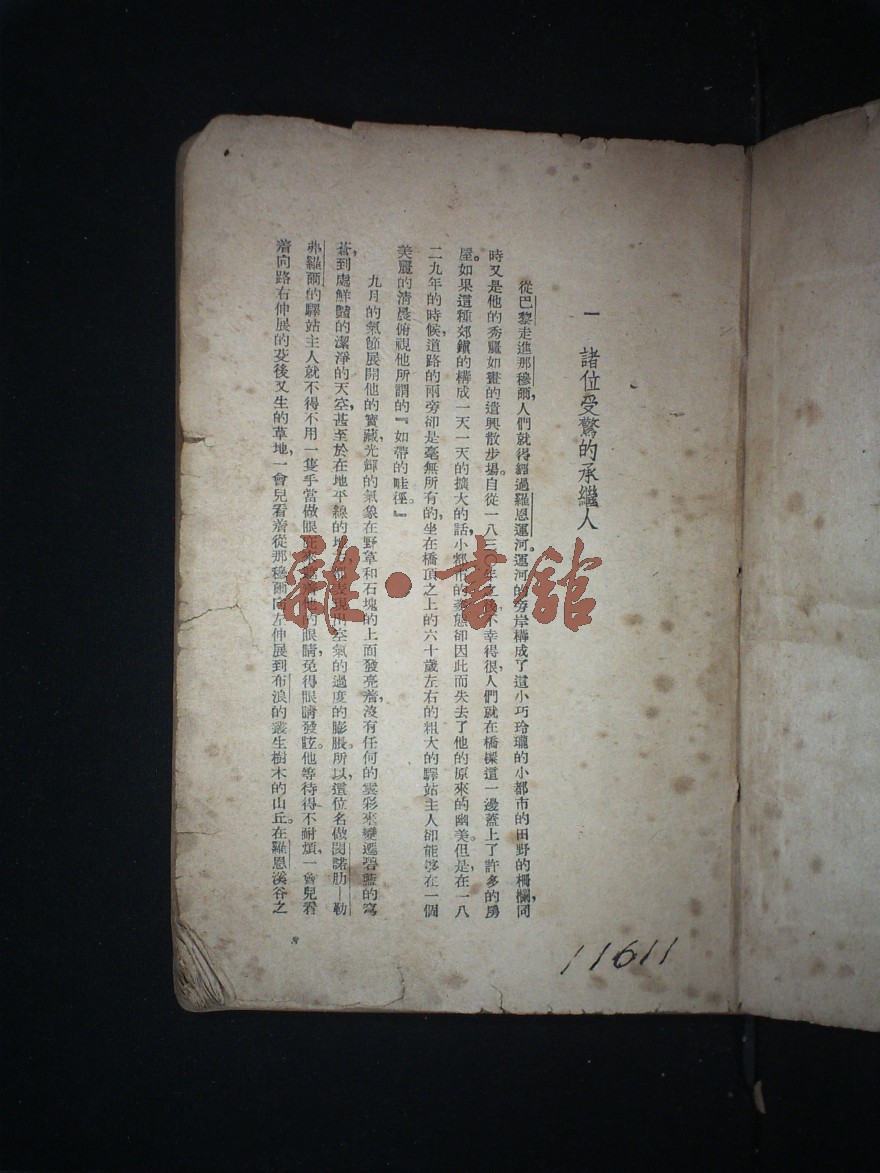 一 諸位受驚的承繼人
從巴黎走進那穆爾,人們就得經過羅恩運河。運河的旁岸構成了這小巧玲瓏的小都市的田野的柵欄,同
時又是他的秀麗如畫的遣興散步場。自從一八三〇年之後,不幸得很,人們就在橋樑這一邊蓋上了許多的房
屋。如果這種郊鎮的構成一天一天的擴大的話,小都市的姿態卻因此而失去了他的原來的幽美。但是,在一八
二九年的時候,道路的兩旁卻是毫無所有的,坐在橋頂之上的六十歲左右的粗大的驛站主人卻能够在一個
美麗的清晨俯視他所謂的『如帶的畦徑。』
九月的氣節展開他的寶藏,光輝的氣象在野草和石塊的上面發亮着,沒有任何的雲彩來變遷碧藍的穹
蒼,到處鮮豔的潔淨的天空,甚至於在地平線的地方都表現出空氣的過度的膨脹。所以,這位名做閔諾肋—勒
弗羅爾的驛站主人就不得不用一隻手當做眼庇來 他的眼睛,免得眼睛發眩。他等待得不耐煩,一會兒看
着向路右伸展的芟後又生的草地,一會兒看着從那穆爾向左伸展到布浪的叢生樹木的山丘。在羅恩溪谷之
8
11611
雜·書館